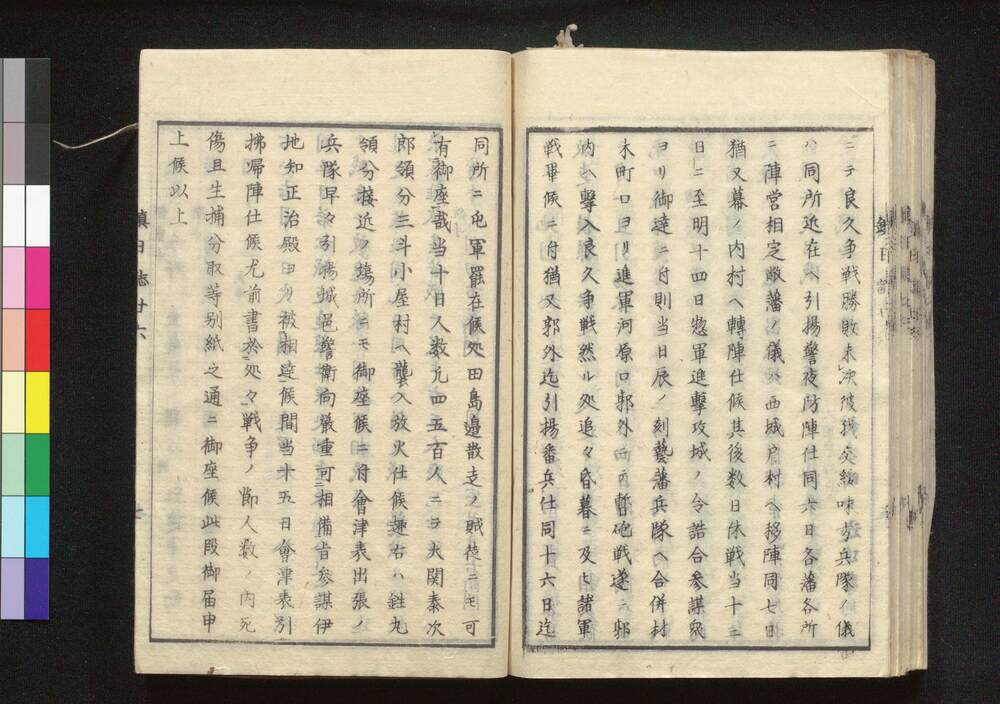 ニテ良久争戦勝敗未決彼我交綏味方兵隊ノ儀
ハ同所近在ヘ引揚警夜防陣仕同六日各藩各所
ニ陣営相定敝藩ノ儀ハ西城戸村ヘ移陣同七日
猶又幕ノ内村ヘ轉陣仕候其後数日休戦当十三
日ニ至明十四日惣軍進撃攻城ノ令諸合参謀衆
ヨリ御達ニ付則当日辰ノ刻藝藩兵隊ヘ合併材
木町口ヨリ進軍河原口郭外ニ而暫砲戦遂ニ郭
内ヘ撃入良久争戦然ル処追々昏暮ニ及ヒ諸軍
戦畢候ニ付猶又郭外迄引揚番兵仕同十六日迄
同所ニ屯軍罷在候処田島邉散走ノ賊徒ニモ可
有御座哉当十日人数凡四五百人ニヨ大関泰次
郎領分三斗小屋村ヘ襲入放火仕候趣右ハ鉎九
領分接近ノ場所ニモ御座候ニ付會津表出張ノ
兵隊早々引揚城邑警衛向厳重可相備旨参謀伊
地知正治殿ヨリ被相達候間当十五日會津表引
拂帰陣仕候尤前書於処々戦争ノ節人数ノ内死
傷且生捕分取等別紙之通ニ御座候此段御届申
上候以上
鎮日誌廿六